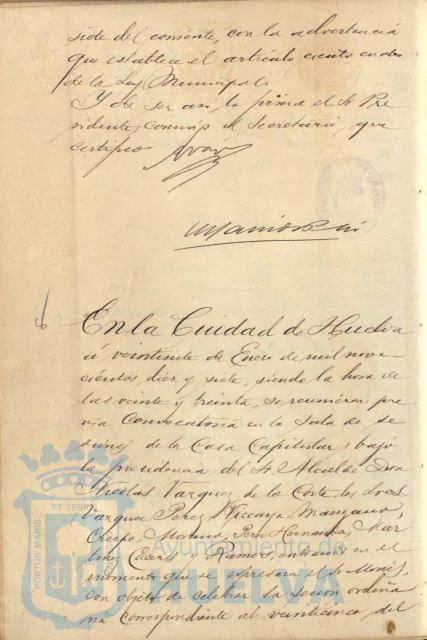 siete del corriente, con la advertencia
que establece el artículo ciento cuatro
de la Ley Municipal.
Y de ser así lo firma el Sr. Pre-
sidente, conmigo el Secretario, que
certifico
En la Ciudad de Huelva
á veintisiete de Enero de mil nove-
cientos diez y siete, siendo la hora de
las veinte y treinta, se reunieron pre-
via convocatoria en la Sala de se-
siones de la Casa Capitular, bajo
la presidencia del Sr. Alcalde Don
Nicolás Vázquez de la Corte los Sres.
Vargas Perez, Vizcaya, Manzano,
Crespo, Moreno, Hernandez, Mar
Ramos, entrando en el
momento que se expresará el Sr.
con objeto de celebrar la sesión ordina
ria correspondiente al veinticinco del
ET TERRAE
PORTUS MARIS
Ayuntamiento de
HUELVA